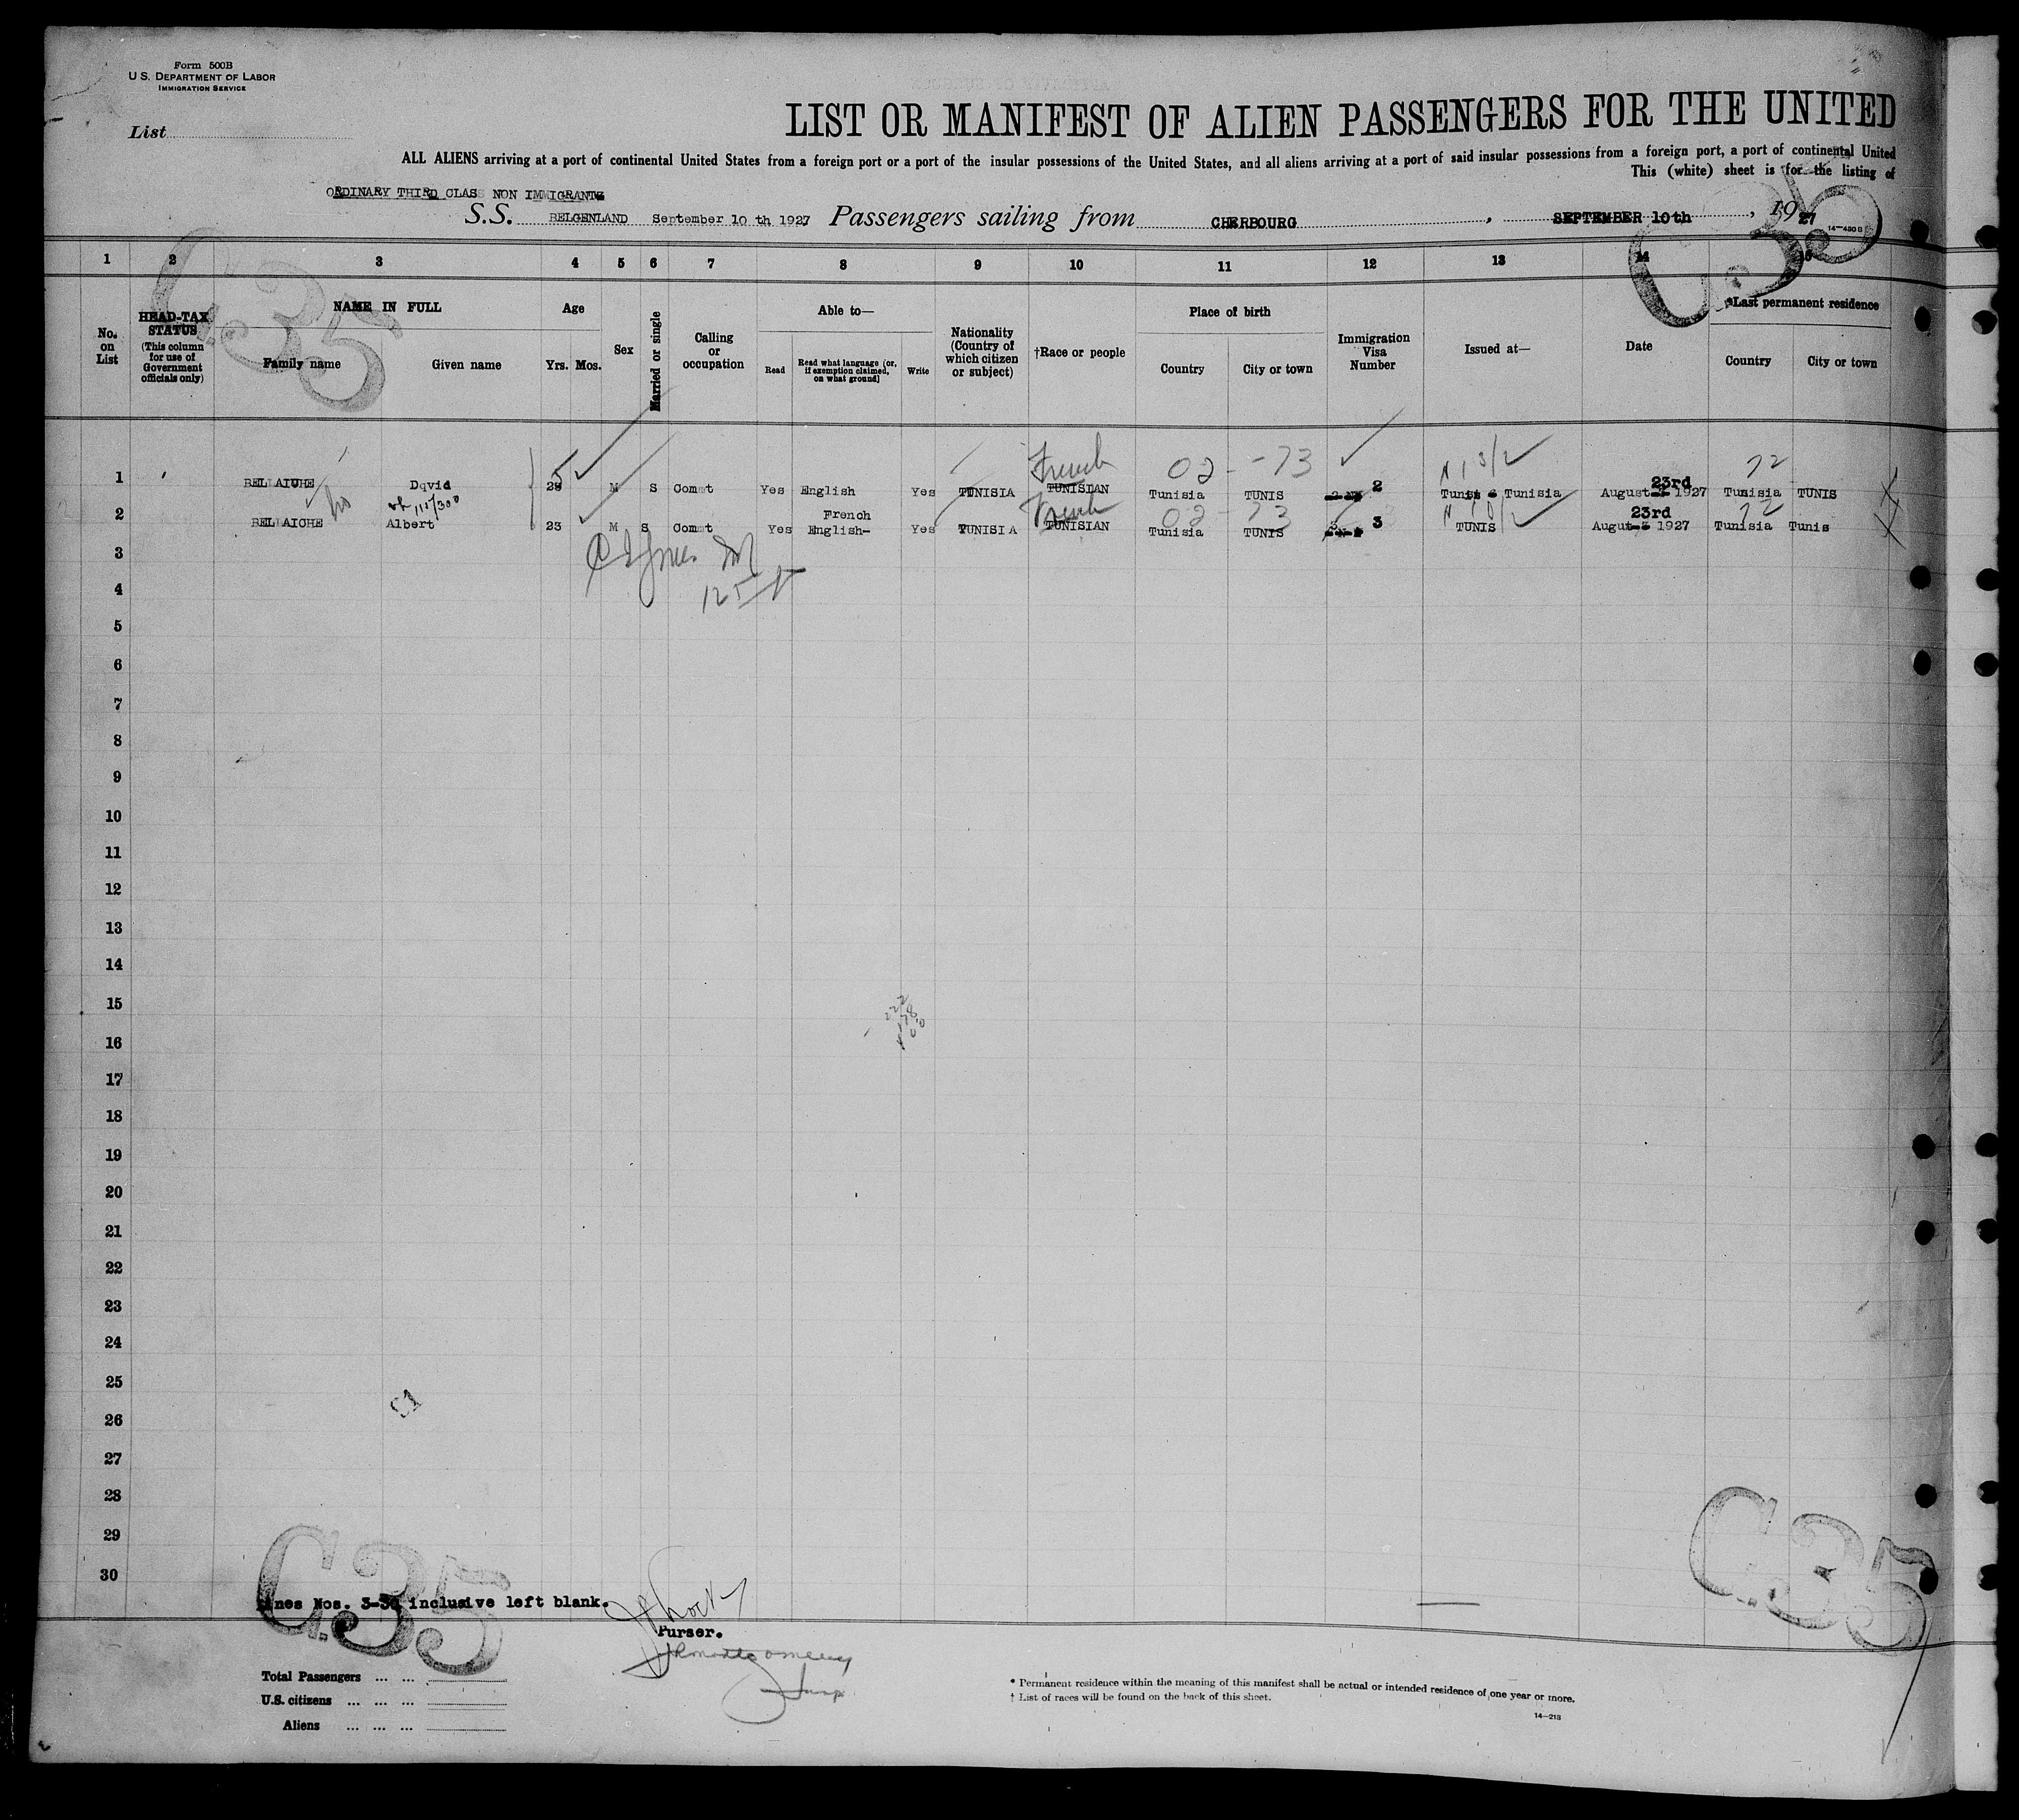 Form 500B
U.S. DEPARTMENT OF LABOR
IMMIGRATION SERVICE
List
LIST OR MANIFEST OF ALIEN PASSENGERS FOR THE UNITED
ALL ALIENS arriving at a port of continental United States from a foreign port or a port of the insular possessions of the United States, and all aliens arriving at a port of said insular possessions from a foreign port, a port of continental United
This (white) sheet is for the listing of
ORDINARY THIRD CLASS NON IMMIGRANTS
S.S. BELGENLAND September 10 th 1927 Passengers sailing from CHERBOURG, SEPTEMBER 10th, 1927
14—430 B
C.35
C.35
1 2 3 4 5 6 7 8 9 10 11 12 13 14 15
No. on List
HEAD-TAX STATUS (This column for use of Government officials only)
NAME IN FULL
Family name Given name
Age
Yrs. Mos.
Sex
Married or single
Calling or occupation
Able to—
Read Read what language (or, if exemption claimed, on what ground) Write
Nationality (Country of which citizen or subject)
†Race or people
Place of birth
Country City or town
Immigration Visa Number
Issued at—
Date
*Last permanent residence
Country City or town
French 02 - 73 72
1 BELLAICHE David 28 M S Commt Yes English Yes TUNISIA TUNISIAN Tunisia TUNIS 2 Tunis Tunisia August 23rd 1927 Tunisia TUNIS
French 02 - 73 72
2 BELLAICHE Albert 23 M S Commt Yes French English- Yes TUNISIA TUNISIAN Tunisia TUNIS 3 TUNIS Augut 23rd 1927 Tunisia Tunis
3
4
5
6
7
8
9
10
11
12
13
14
15
16
17
18
19
20
21
22
23
24
25
26
27
28
29
30
C.35
C.35
Lines Nos. 3-30 inclusive left blank.
Purser.
Total Passengers ... ...
U.S. citizens ... ... ...
Aliens ... ... ...
* Permanent residence within the meaning of this manifest shall be actual or intended residence of one year or more.
† List of races will be found on the back of this sheet.
14—213